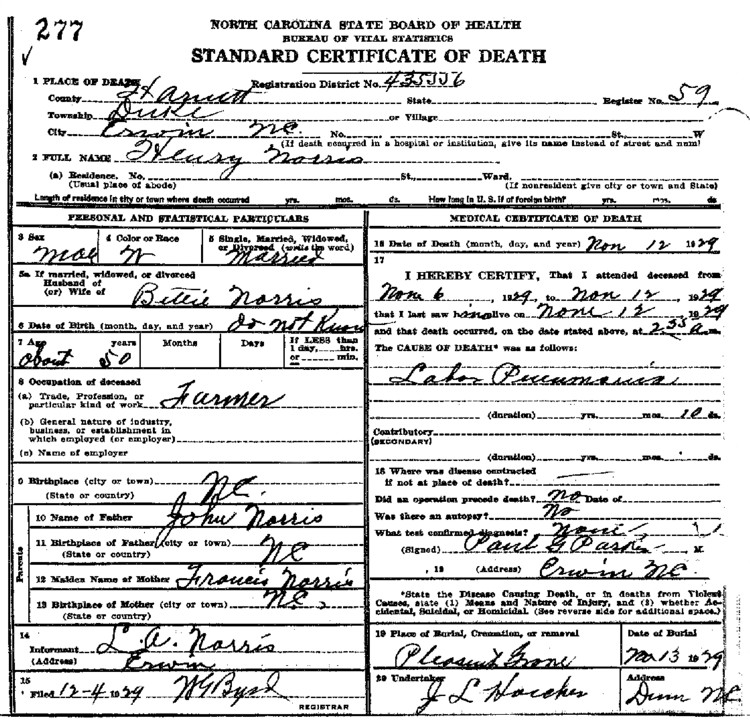 277
NORTH CAROLINA STATE BOARD OF HEALTH
BUREAU OF VITAL STATISTICS
STANDARD CERTIFICATE OF DEATH
1 PLACE OF DEATH Registration District No. 435556
County Harnett State Register No. 59
Township Duke or Village
City Erwin NC. No. St., W
(If death occurred in a hospital or institution, give its name instead of street and num)
2 FULL NAME Henry Norris
(a) Residence. No. St., Ward.
(Usual place of abode) (If nonresident give city or town and State)
Length of residence in city or town where death occurred yrs. mos. ds. How long in U. S. if of foreign birth? yrs. mos. ds
PERSONAL AND STATISTICAL PARTICULARS
3 Sex 4 Color or Race 5 Single, Married, Widowed,
or Divorced (write the word)
Mal W Married
5a If married, widowed, or divorced
Husband of
(or) Wife of Bettie Norris
6 Date of Birth (month, day, and year) do not Know
7 Age years Months Days If LESS than
1 day, hrs.
or min.
about 50
8 Occupation of deceased
(a) Trade, Profession, or
particular kind of work Farmer
(b) General nature of industry,
business, or establishment in
which employed (or employer)
(c) Name of employer
9 Birthplace (city or town)
(State or country) NC.
Parents
10 Name of Father John Norris
11 Birthplace of Father (city or town)
(State or country) NC
12 Maiden Name of Mother Francis Norris
13 Birthplace of Mother (city or town) NC,
(State or country)
14
Informant L. A. Norris
(Address) Erwin
15
Filed 12-4 1929 W G Byrd
REGISTRAR
MEDICAL CERTIFICATE OF DEATH
16 Date of Death (month, day, and year) Nov 12 1929
17
I HEREBY CERTIFY, That I attended deceased from
Nov 6, 1929, to Nov 12, 1929
that I last saw him alive on Nov 12 1929
and that death occurred, on the date stated above, at 2.35 a.m.
The CAUSE OF DEATH* was as follows:
Labor Pneumonia
(duration) yrs. mos. 10 ds.
Contributory
(SECONDARY)
(duration) yrs. mos. ds.
18 Where was disease contracted
if not at place of death?
Did an operation precede death? No Date of
Was there an autopsy? No
What test confirmed diagnosis? None
(Signed) Paul G M.
, 19 (Address) Erwin NC.
*State the Disease Causing Death, or in deaths from Violent
Causes, state (1) Means and Nature of Injury, and (2) whether Ac-
cidental, Suicidal, or Homicidal. (See reverse side for additional space.)
19 Place of Burial, Cremation, or removal Date of Burial
Pleasant Grove Nov 13 1929
20 Undertaker Address
J L Dunn NC